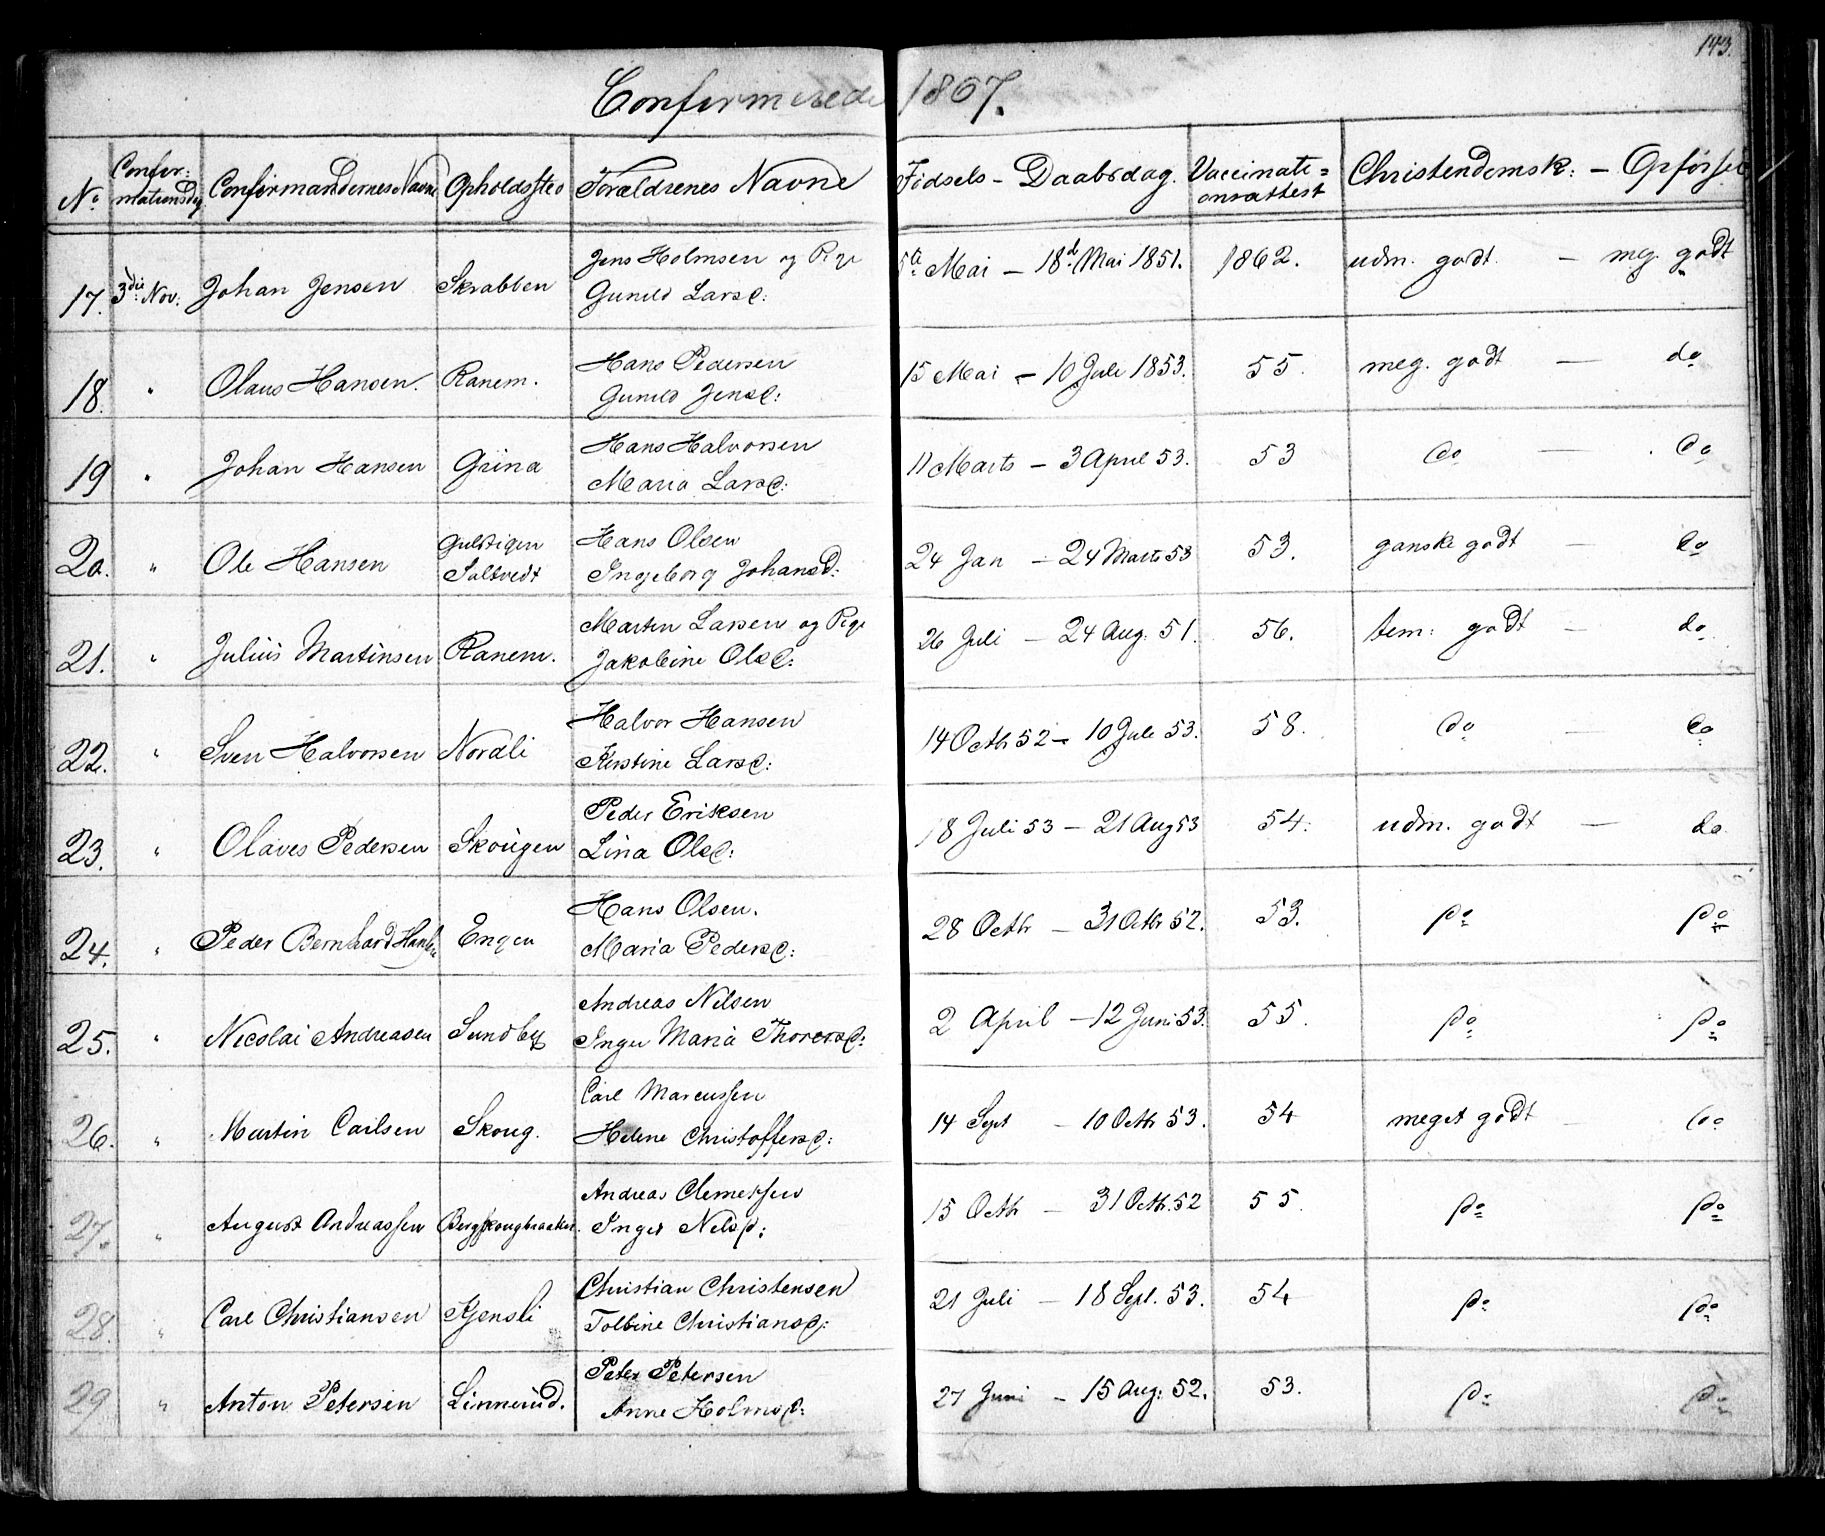 143.
Confirmerede 1867.
No Confirmationsdag Confirmandernes Navne Opholdssted Forældrenes Navne Fødsels - Daabsdag. Vaccinationsattest Christendomsk: - Opførsel
17. 3die Nov: Johan Jensen Skrabben Jens Holmsen og Pige Gunild Larsd: 5te Mai - 18d. Mai 1851. 1862. udm. godt - meg. godt
18. " Olaus Hansen. Ranem. Hans Pedersen Gunild Jensd: 15 Mai - 10 Juli 1853. 55. meg. godt - do
19 " Johan Hansen Grina Hans Halvorsen Maria Larsd: 11 Marts - 3 April 53. 53 do - do
20. " Ole Hansen Saltvedt Hans Olsen Ingeborg Johansd: 24 Jan - 24 Marts 53 53. ganske godt - do
21. " Julius Martinsen Ranem. Martin Larsen og Pige Jakobine Olsd: 26 Juli - 24 Aug. 51. 56. tem: godt - do
22. " Sven Halvorsen Nordli Halvor Hansen Kirstine Larsd: 14 Octb 52 - 10 Juli 53. 58. do - do
23. " Olaves Pedersen Skougen Peder Eriksen Lina Olsd: 18 Juli 53 - 21 Aug 53 54. udm. godt - do.
24. " Peder Bernhard Hansen Engen Hans Olsen. Maria Pedersd: 28 Octb - 31 Octb 52. 53. Do Do
25. " Nicolai Andreasen Sundby Andreas Nilsen Inger Maria Thorersd: 2 April - 12 Juni 53. 55. Do Do
26. " Martin Carlsen Skoug. Carl Marcussen Helene Christoffersd: 14 Sept - 10 Octb 53. 54 meget godt - do
27. " August Andreassen Bergskougbraaten. Andreas Clemetsen Inger Nelsd: 15 Octb - 31 Octb. 52 55. Do Do
28. " Carl Christiansen Kjensli Christian Christensen Tolbine Christiansd: 21 Juli - 18 Sept. 53. 54 Do Do
29 " Anton Petersen Linnerud. Peter Petersen Anne Holmsd: 27 Juni - 15 Aug: 52. 53. Do Do